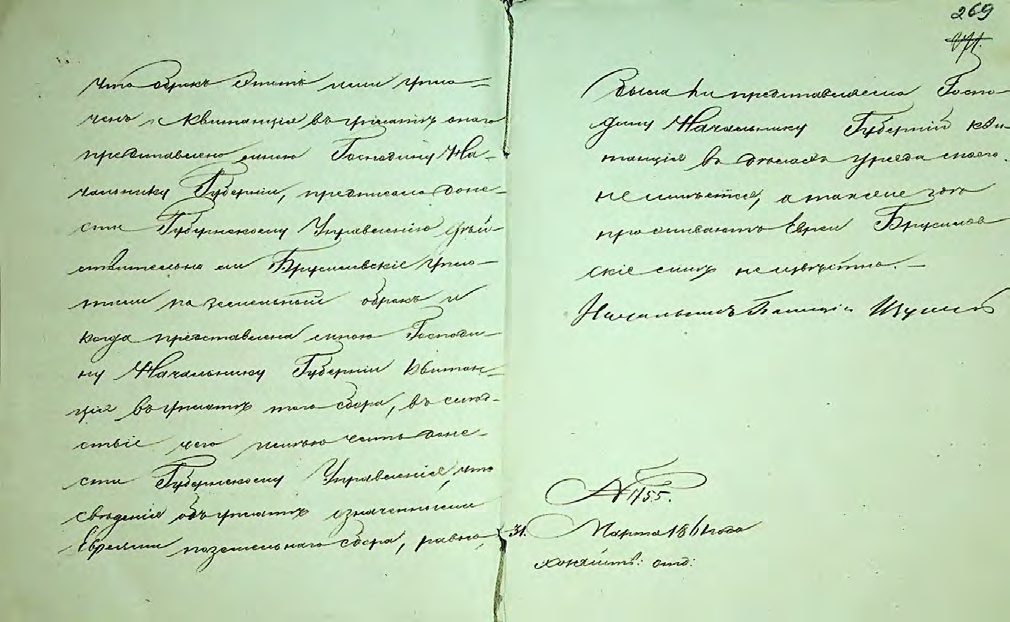 что оброкъ этотъ ими упла-
ченъ и Квитанція въ уплатѣ онаго
представлено мною Господину На-
чальнику Губерніи, предписано доне-
сти Губернскому Управленію дѣй-
ствительно ли Брусиловскіе упла-
тили поземельный оброкъ и
когда представлена мною Господи-
ну Начальнику Губерніи Квитан-
ція въ уплатѣ того сбора, въ слѣд-
ствіе чего имѣю честь доне-
сти Губернскому Управленію, что
свѣденія объ уплатѣ означенными
Евреями поземельнаго сбора, равно,
269
была ли представлена Госпо-
дину Начальнику Губерніи кви-
танція въ дѣлахъ уѣзда сего
не имѣется, а также гдѣ
проживаютъ Евреи Брусилов
скіе мнѣ неизвѣстно. —
Начальникъ
№ 1755.
31. Марта 1861 года
хозяйств: отд: